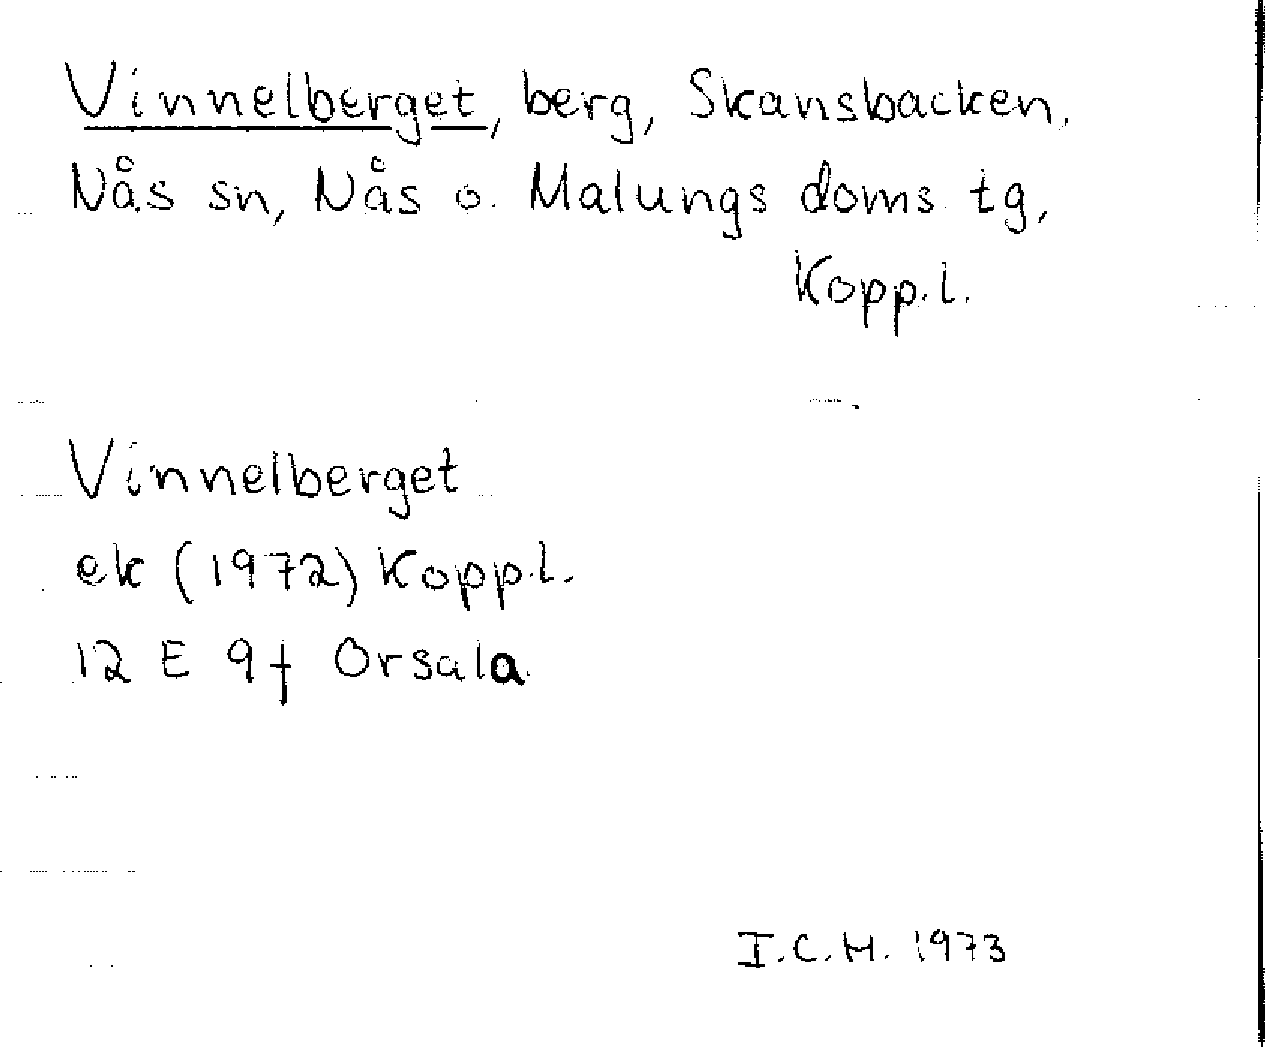 Vinnelberget, berg, Skansbacken,
Nås sn, Nås o. Malungs doms tg,
Kopp.l.
Vinnelberget
ek (1972) Kopp.l.
12 E 9f Orsala
I.C.H. 1973